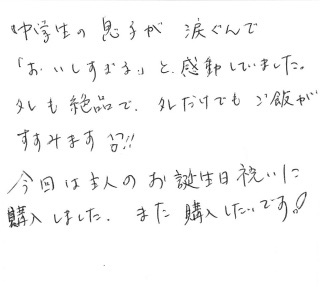 中学生の息子が涙ぐんで
「おいしすぎる」と、感動していました。
タレも絶品で、タレだけでもご飯が
すすみます!!
今回は主人のお誕生日祝いに
購入しました。また購入したいです!